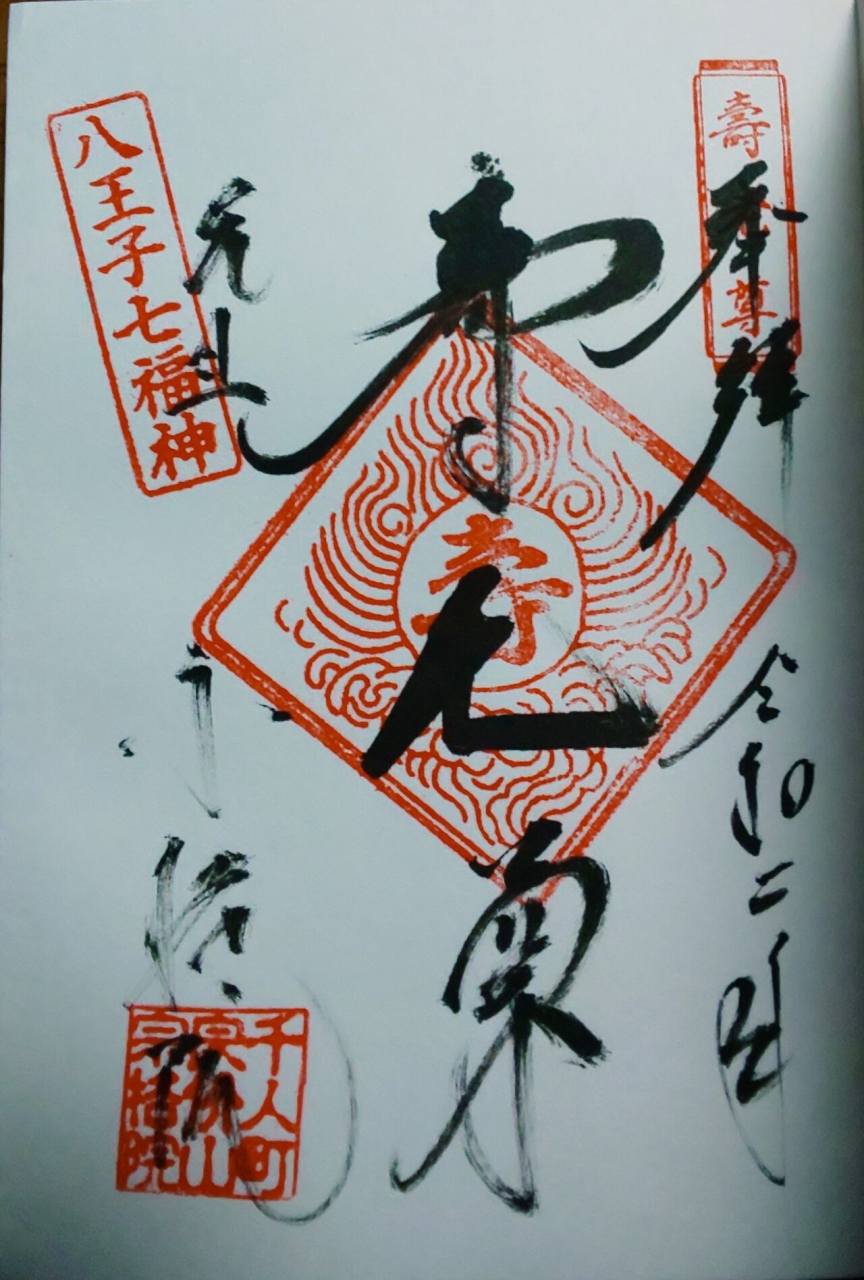 壽老尊
奉拝
令和二年
寿
寿老尊
八王子七福神
千人町
宗格院